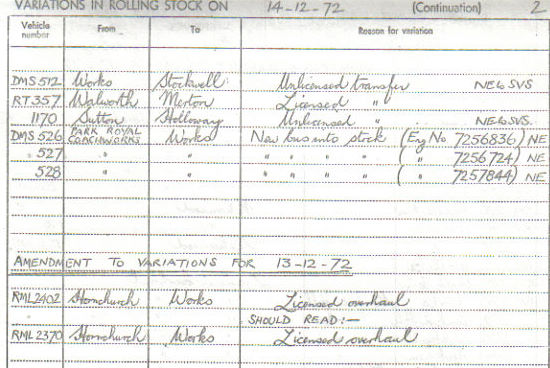 VARIATIONS IN ROLLING STOCK ON 14-12-72 (Continuation) 2
Vehicle number From To Reason for variation
DMS 512 Works Stockwell Unlicensed transfer NE6 SVS
RT 357 Walworth Merton Licensed "
1170 Sutton Holloway Unlicensed " NE6 SVS.
DMS 526 PARK ROYAL COACHWORKS Works New bus into stock (Eng No 7256836) NE
527 " " " " " " ( " 7256724) NE
528 " " " " " " ( " 7257844) NE
AMENDMENT TO VARIATIONS FOR 13-12-72
RML2402 Hornchurch Works Licensed overhaul
SHOULD READ:—
RML 2370 Hornchurch Works Licensed overhaul